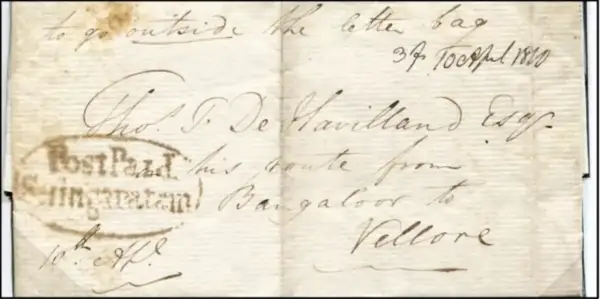 to go outside the letter bag
10 April 1810
Thos. T. De Havilland Esqr.
Post Paid
Seringapatam
his route from
Bangaloor to
10th Apl.
Vellore